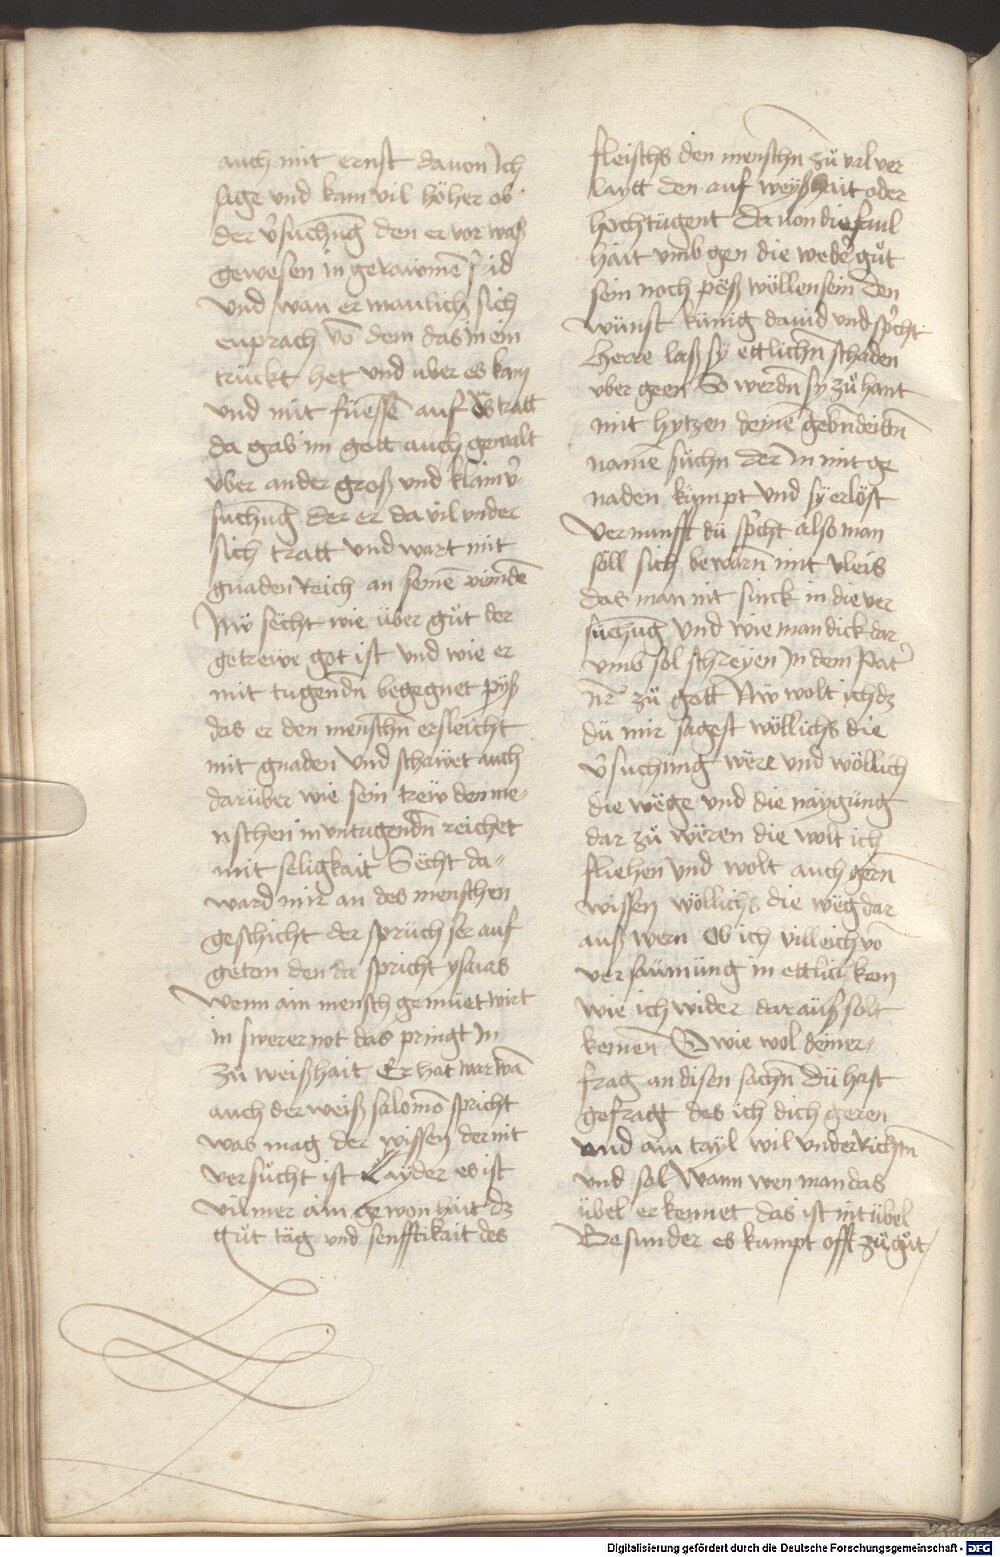 auch mit ernst dauon Ich
sage und kam vil höher ob
der v̾suchūg den er vor waß
gewesen in gerawmē
Vnd wan er manlich sich
enprach vō dem das in ein
trückt het und uber es kam
vnd mit fuessē auf es tratt
da gab im gott auch gewalt
vber ander groß vnd klain v̾
suchūg der er da vil vnder
sich tratt vnd wart mit
gnaden Reich an seinē veindē
Nw secht wie über gůt der
getrewe got ist vnd wie er
mit tugendn̄ begegnet pyß
das er den menschn̄ erfleicht
mit gnaden vnd schawet auch
darüber wie sein trew den me-
nschen in vntugendn̄ reichet
mit seligkait Secht da-
ward mir an des menschen
geschicht der sprüch ser auf
geton den da spricht ysaias
Wenn ain mensch gemüet wirt
in swerer not das pringt in
zů weißhait Er hat war wā
auch der weiß salomō spricht
was mag der wissen der nit
versůcht ist Layder es ist
vil mer ain gewonhait dz
gůt täg vnd senfftikait des
fleischs den menschn zů vil ver
laytt den auf weyßhait oder
hochtügent Da von die faul
hait vmb gen die wedē gůt
sein noch pöß wöllen sein Den
wünst künig dauid vnd sp̾cht
Herre laß sy ettlichn̄ schaden
über geen So werdn̄ sy zů hant
mit hytzen deinē gebn̄deitn̄
namē suchn der in mit ge
naden kümpt vnd sy erlöst
Vernunfft dü sp̾cht also man
söll sich bewarn̄ mit vleis
das man nit sinck in die ver
suchūg Vnd wie man dick dar
vmb sol schreyen in dem Pat̾
nr̄ zů gott Nw wolt ich dz
dü mir sagest wöllichs die
v̾suchung were vnd wöllich
die wege vnd die naygüng
dar zů weren die wolt ich
fliehen Vnd wolt auch gern̄
wissen wöllichs die weg dar
auß wern Ob ich villeich vō
versäumüng in ettlich kom
wie ich wider darauß solt
kemen O wie wol deiner-
frag an disen sachn̄ Dü hast
gefragt des ich dich geren
vnd ain tayl wil vnderRichtn̄
vnd sol Wann wen man das
übel erkennet das ist nit übel
Besunder es kumpt offt zů gůt
Digitalisierung gefördert durch die Deutsche Forschungsgemeinschaft - DFG